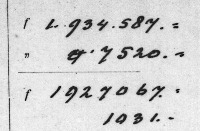 f 1.934.587.=
" 9.7520.=
f 1927067.=
1031.-